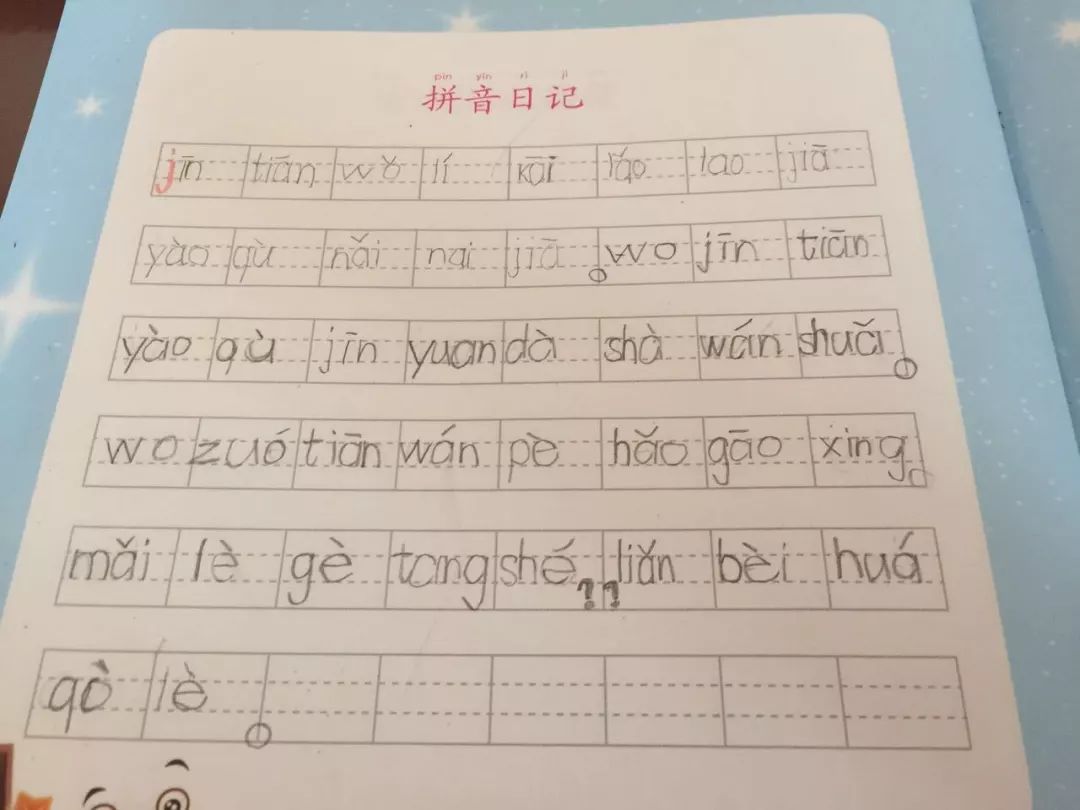 pīn yīn rì jì
拼音日记
jīn tiān wǒ lí kāi lǎo lao jiā
yào qù nǎi nai jiā。wo jīn tiān
yào qù jīn yuan dà shà wán shuǎ。
wo zuó tiān wán pè hǎo gāo xing。
mǎi lè gè tang shé??liǎn bèi huá
qò lè。